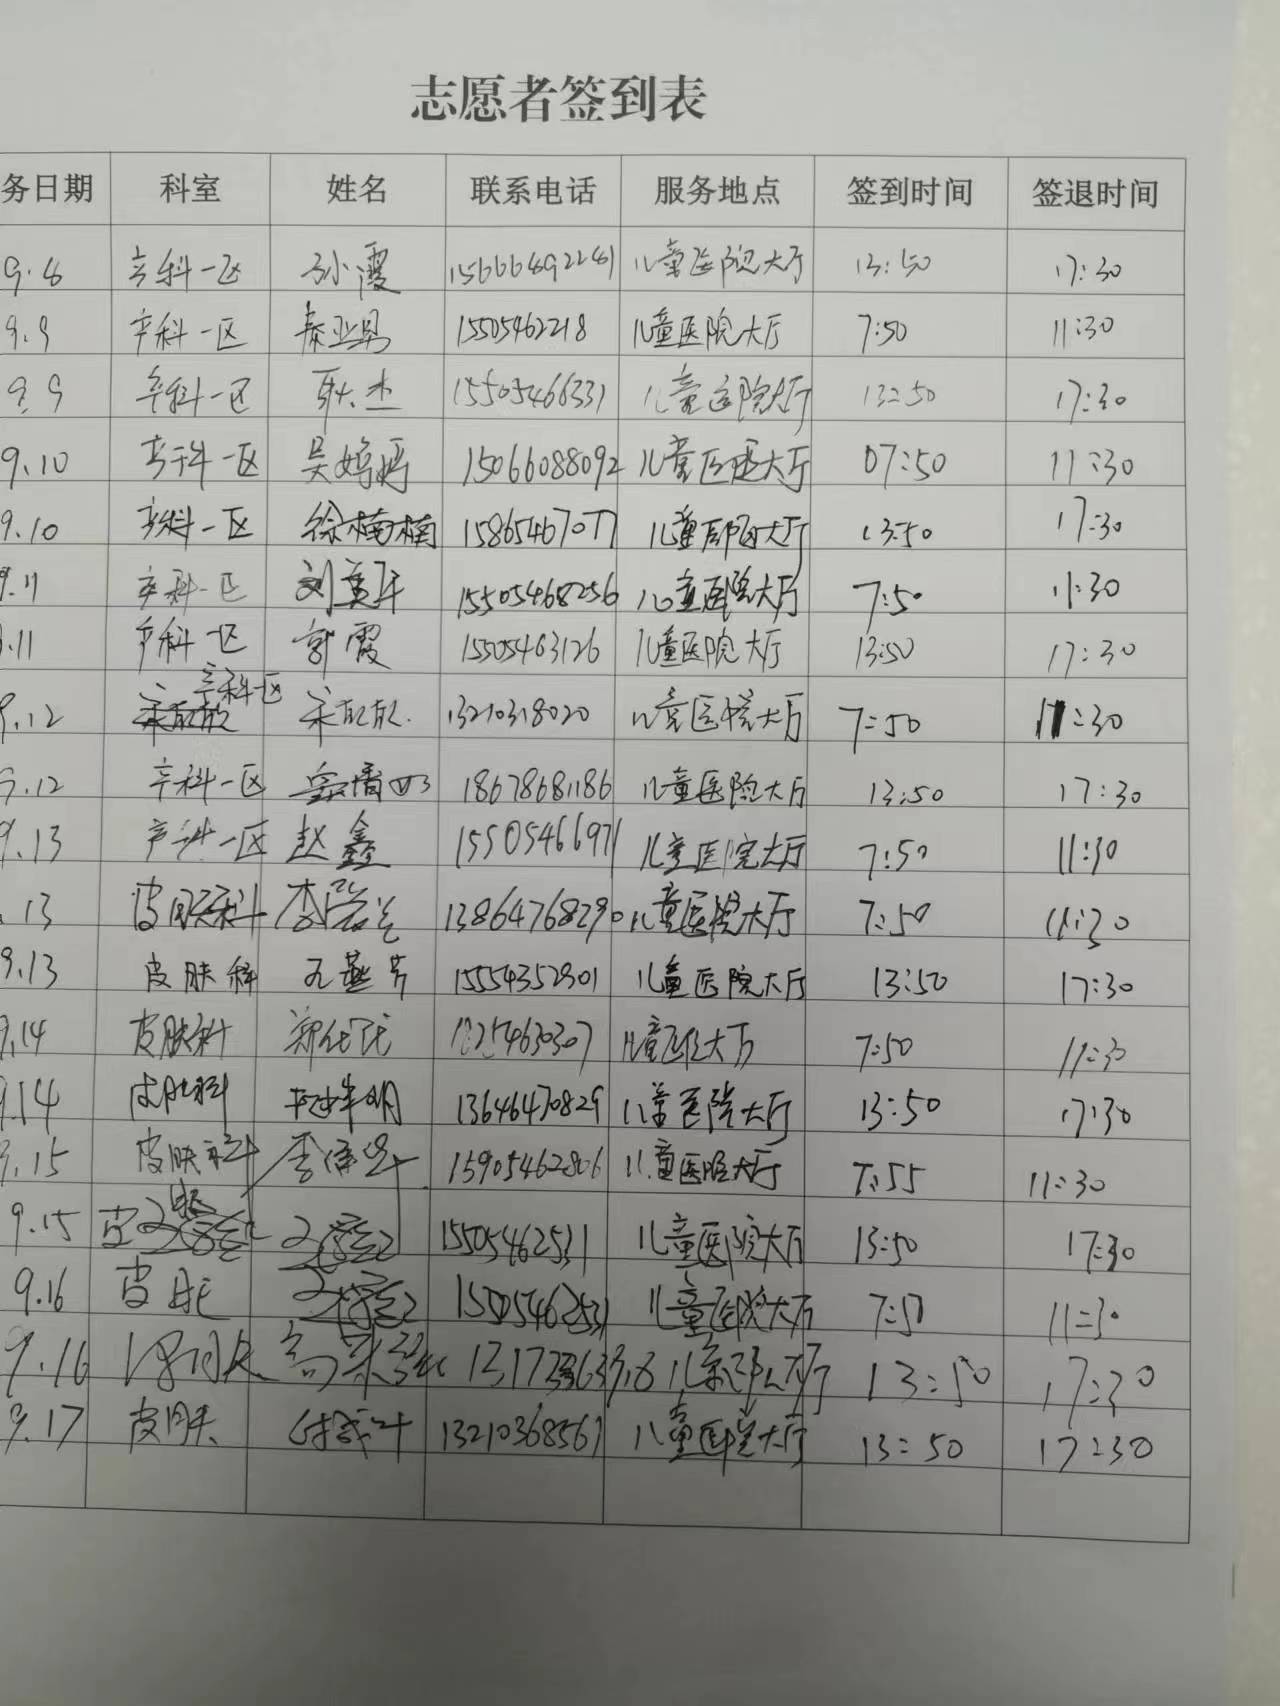 志愿者签到表
务日期 科室 姓名 联系电话 服务地点 签到时间 签退时间
9.8 产科一区 孙霞 儿童医院大厅 13:50 17:30
9.9 产科一区 秦亚男 15505462218 儿童医院大厅 7:50 11:30
9.9 产科一区 耿杰 15505466331 儿童医院大厅 13:50 17:30
9.10 产科一区 15066088092 儿童医院大厅 07:50 11:30
9.10 产科一区 徐楠楠 儿童医院大厅 13:50 17:30
9.11 产科一区 15505468256 儿童医院大厅 7:50 11:30
9.11 产科一区 郭霞 15505463126 儿童医院大厅 13:50 17:30
产科一区
9.12 13210318020 儿童医院大厅 7:50 11:30
9.12 产科一区 18678681186 儿童医院大厅 13:50 17:30
9.13 产科一区 赵鑫 15505466971 儿童医院大厅 7:50 11:30
.13 皮肤科 13864768290 儿童医院大厅 7:50 11:30
9.13 皮肤科 15554352901 儿童医院大厅 13:50 17:30
9.14 皮肤科 儿童医院大厅 7:50 11:30
9.14 皮肤科 13646470829 儿童医院大厅 13:50 17:30
9.15 皮肤科 15905462806 儿童医院大厅 7:55 11:30
9.15 15505462531 儿童医院大厅 13:50 17:30
9.16 皮肤 15505462531 儿童医院大厅 7:50 11:30
9.16 13:50 17:30
9.17 皮肤 13210368561 儿童医院大厅 13:50 17:30